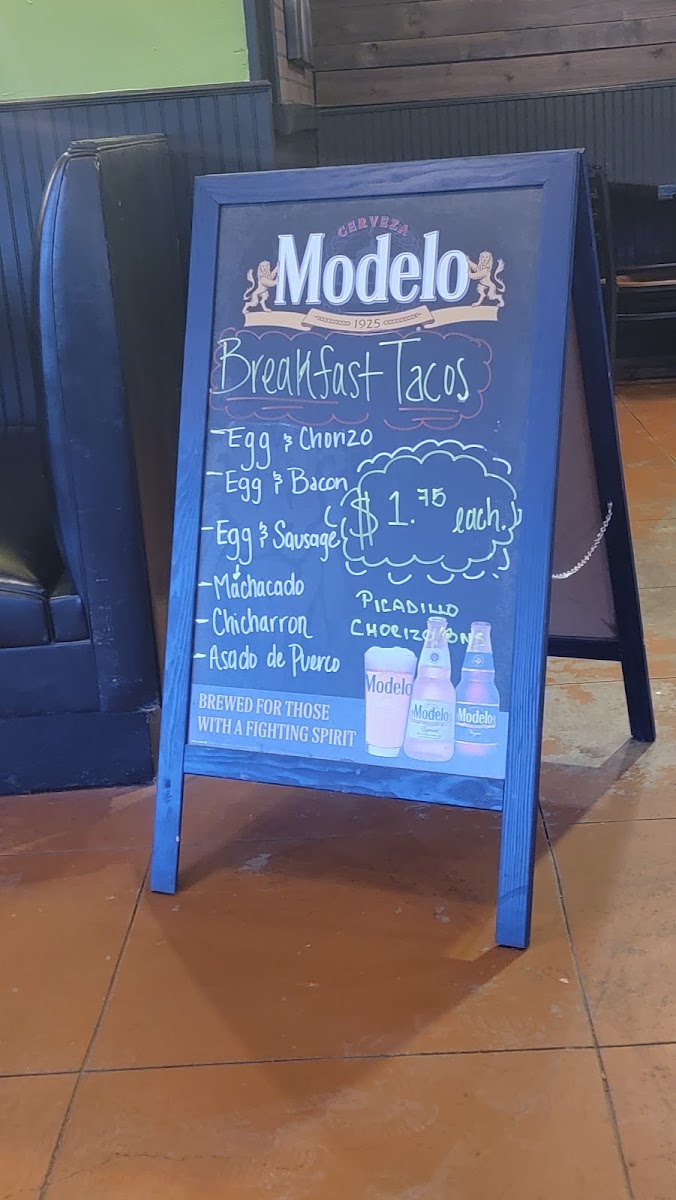 CERVEZA
Modelo
1925
Breakfast Tacos
- Egg & Chorizo
- Egg & Bacon
- Egg & Sausage
- Machacado
- Chicharron
- Asado de Puerco
$1.75 each.
PICADILLO
CHORIZO/BNS
Modelo
Modelo
Especial
Modelo
Negra
BREWED FOR THOSE
WITH A FIGHTING SPIRIT